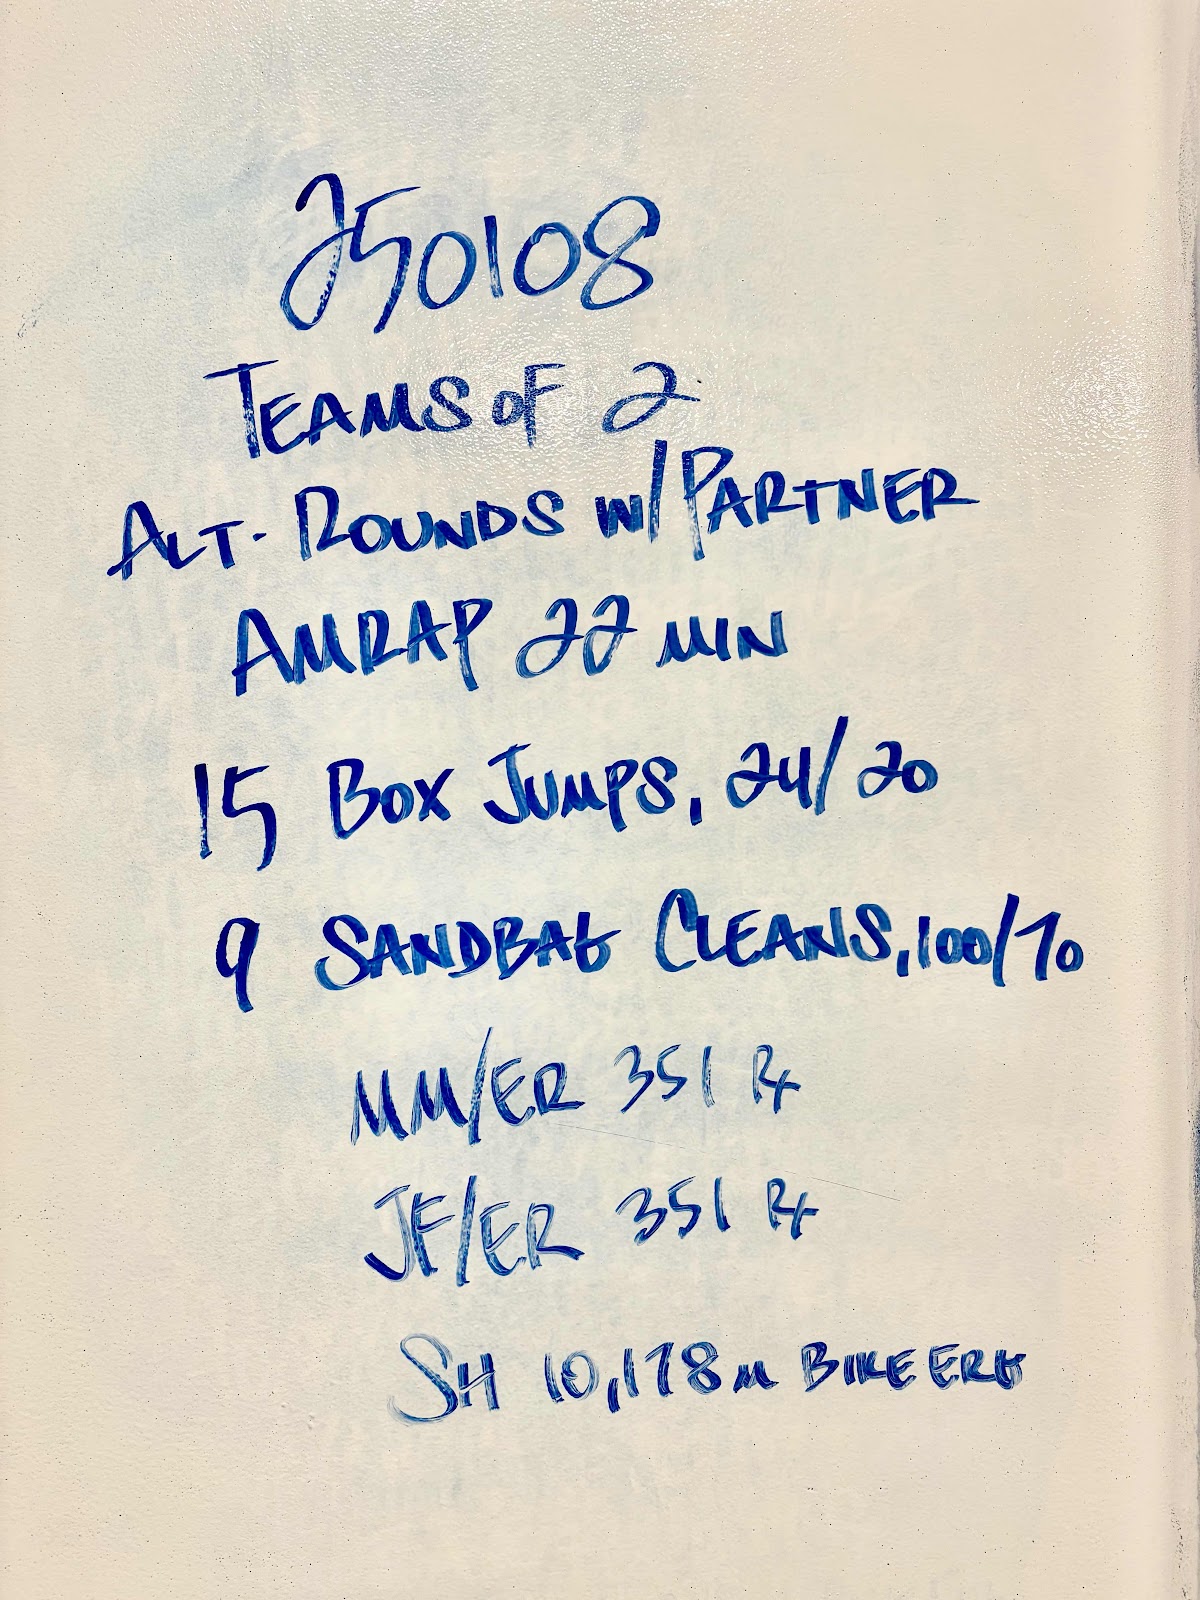 250108
TEAMS OF 2
ALT. ROUNDS W/PARTNER
AMRAP 22 MIN
15 BOX JUMPS, 24/20
9 SANDBAG CLEANS, 100/70
MM/ER 351 Rx
JF/ER 351 Rx
SH 10,178m BIKE ERG